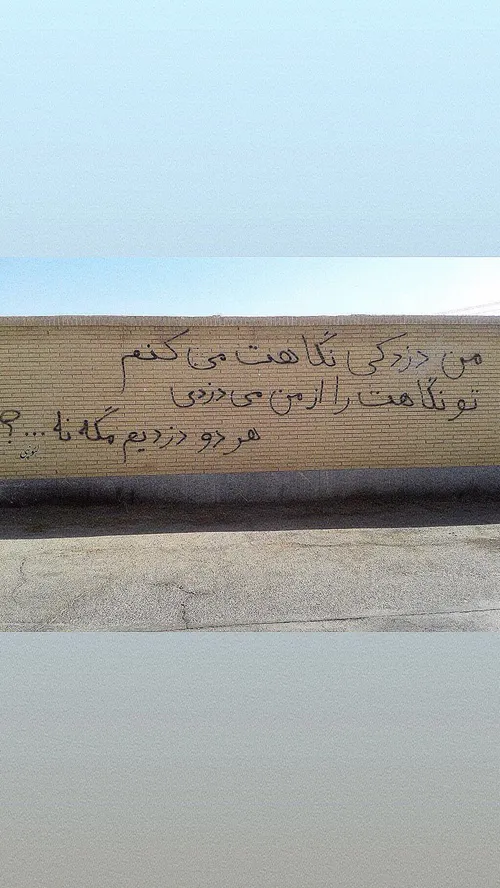 من دزدکی نگاهت می کنم
تو نگاهت را از من می دزدی
هر دو دزدیم مگه نه ...؟